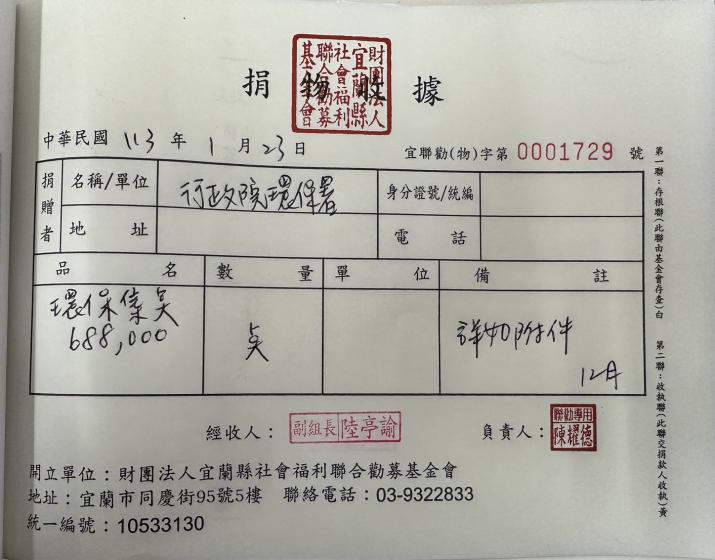 捐物收據
財團法人
宜蘭縣
社會福利
聯合勸募
基金會
中華民國 113 年 1 月 23 日
宜聯勸(物)字第 0001729 號
捐贈者
名稱/單位 行政院環保署 身分證號/統編
地址 電話
品名 數量 單位 備註
環保集點 點 詳如附件
688,000 12月
經收人： 副組長 陸亭諭 負責人： 聯勸專用 陳耀德
開立單位：財團法人宜蘭縣社會福利聯合勸募基金會
地址：宜蘭市同慶街95號5樓 聯絡電話：03-9322833
統一編號：10533130
第一聯：存根聯(此聯由基金會存查)白
第二聯：收執聯(此聯交捐款人收執)黃